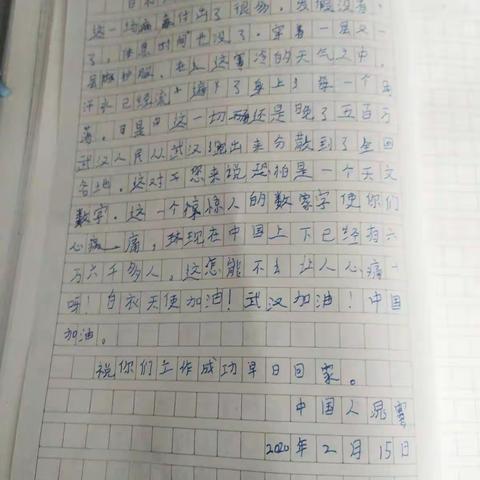 这一场病毒付出了很多，放假没有
了，休息时间也没了。穿着一层又一
层防护服，在这寒冷的天气之中，
汗水已经流遍了身上的每一个角
落。可是这一切还是晚了五百万
武汉人民从武汉跑出来分散到了全国
各地，这对于您来说恐怕是一个天文
数字。这一个惊人的数字使你们
心痛一痛，现在中国上下已经有六
万六千多人，这怎能不让人心痛
呀！白衣天使加油！武汉加油！中国
加油。
祝你们工作成功早日回家。
中国人
2020年2月15日